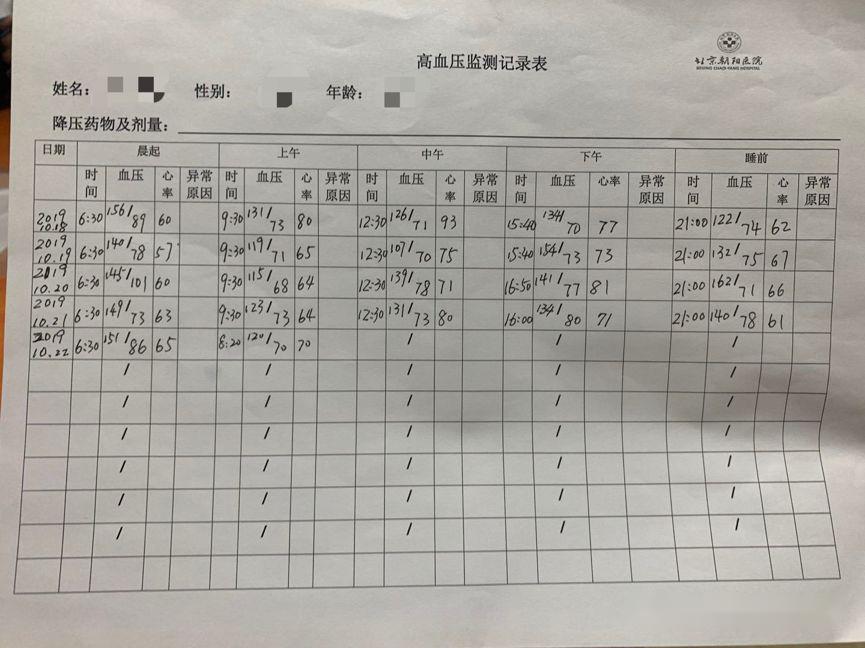 高血压监测记录表
北京朝阳医院
BEIJING CHAO-YANG HOSPITAL
姓名： 性别： 年龄：
降压药物及剂量：
日期 晨起 上午 中午 下午 睡前
时间 血压 心率 异常原因 时间 血压 心率 异常原因 时间 血压 心率 异常原因 时间 血压 心率 异常原因 时间 血压 心率 异常原因
2019 10.18 6:30 156/89 60 9:30 131/73 80 12:30 126/71 93 15:40 134/70 77 21:00 122/74 62
2019 10.19 6:30 140/78 57 9:30 119/71 65 12:30 107/70 75 15:40 154/73 73 21:00 132/75 67
2019 10.20 6:30 145/101 60 9:30 115/68 64 12:30 139/78 71 16:50 141/77 81 21:00 162/71 66
2019 10.21 6:30 149/73 63 9:30 123/73 64 12:30 131/73 80 16:00 134/80 71 21:00 140/78 61
2019 10.22 6:30 151/86 65 8:20 120/70 70 / / /
/ / / / /
/ / / / /
/ / / / /
/ / / / /
/ / / / /
/ / / / /